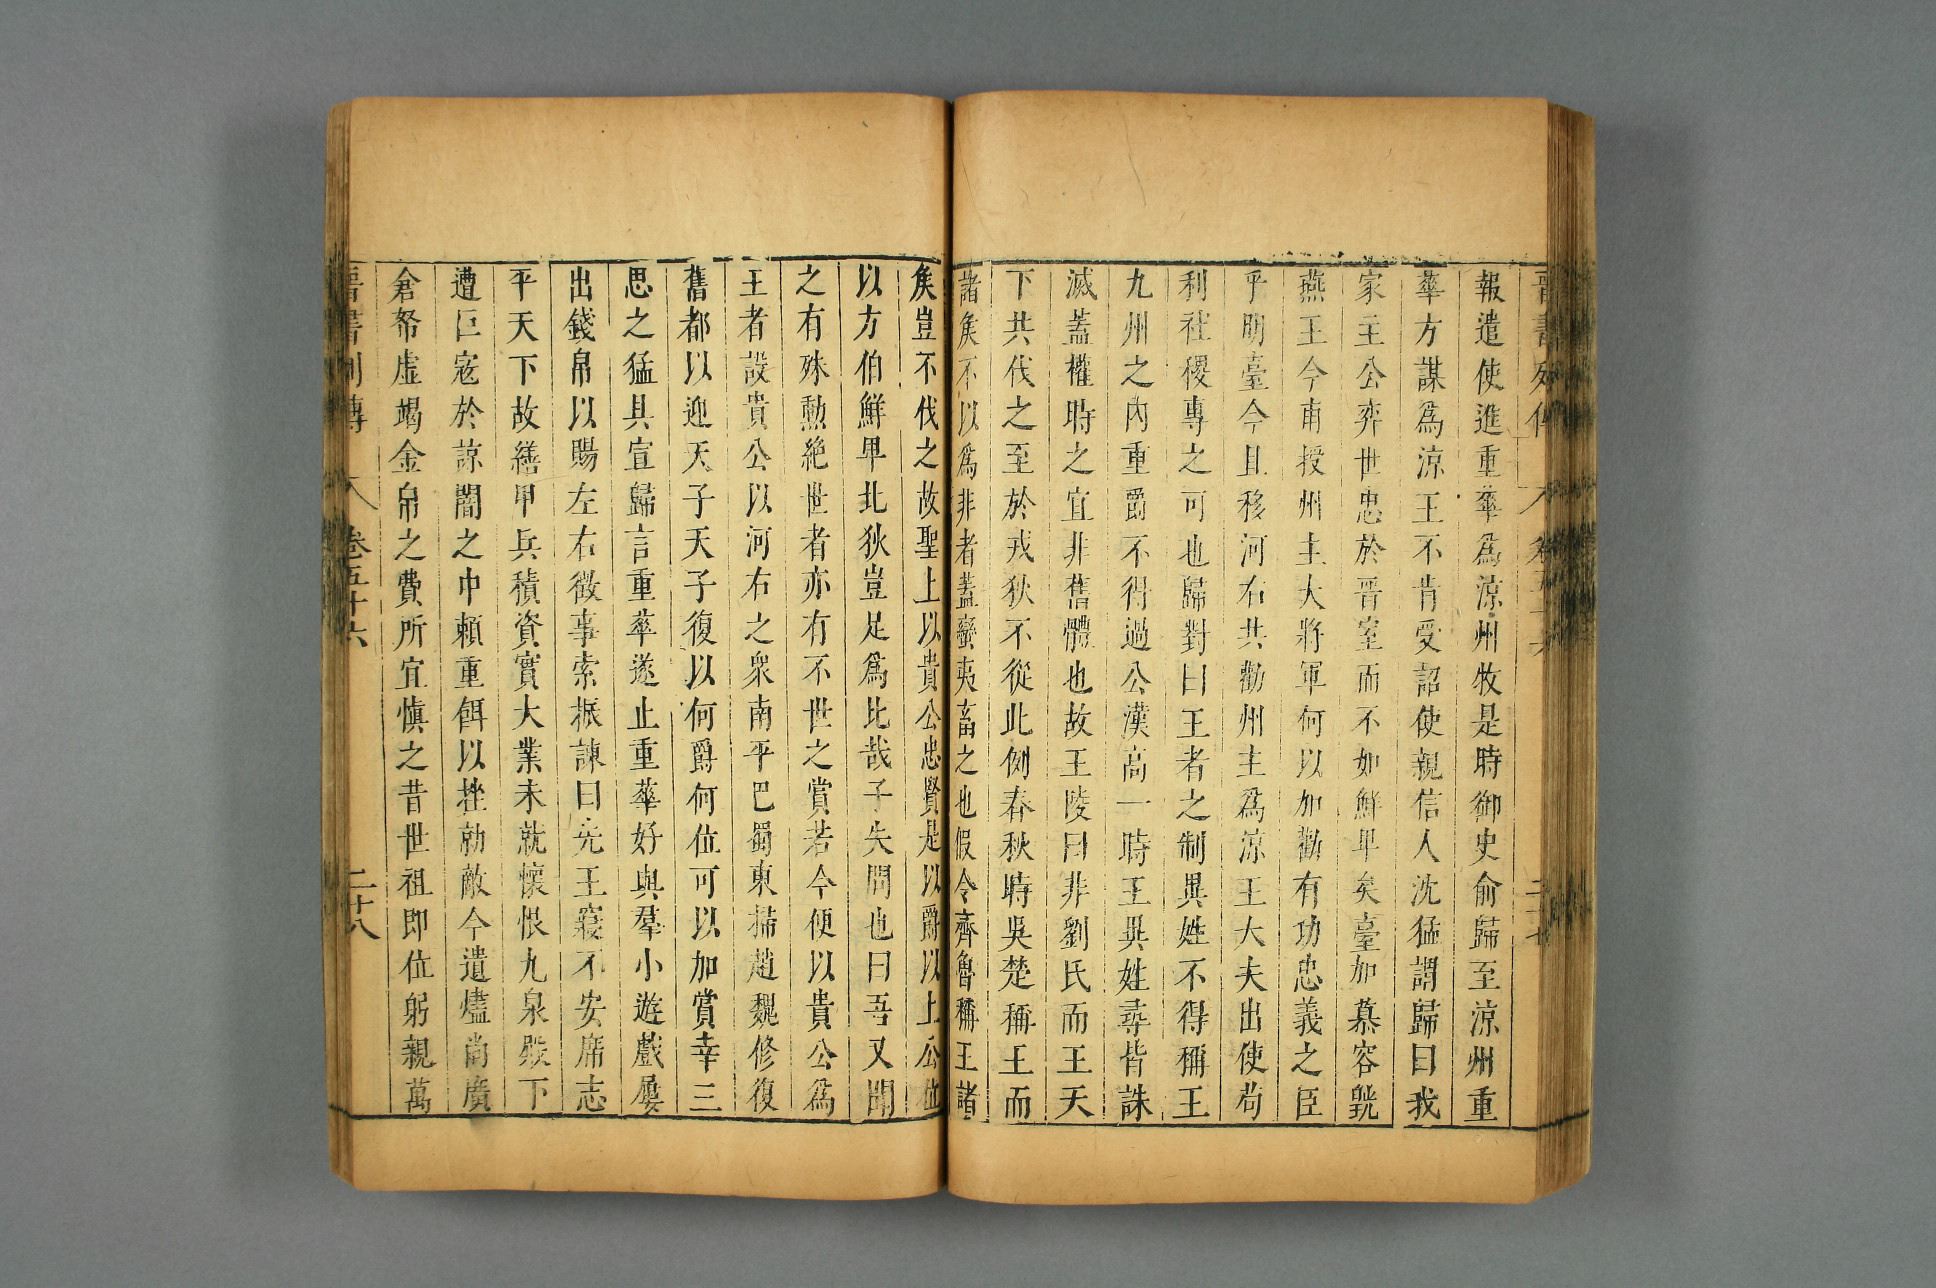 晉書列傳 卷五十六 二十七
報遣使進重華爲涼州牧是時御史俞歸至涼州重
華方謀爲涼王不肯受詔使親信人沈猛謂歸曰我
家主公奕世忠於晉室而不如鮮卑矣臺加慕容皝
燕王今甫授州主大將軍何以加勸有功忠義之臣
乎明臺今且移河右共勸州主爲涼王大夫出使苟
利社稷專之可也歸對曰王者之制異姓不得稱王
九州之內重爵不得過公漢高一時王異姓尋皆誅
滅蓋權時之宜非舊體也故王陵曰非劉氏而王天
下共伐之至於戎狄不從此例春秋時吳楚稱王而
諸矦不以爲非者蓋蠻夷畜之也假令齊魯稱王諸
矦豈不伐之故聖上以貴公忠賢是以爵以上公位
以方伯鮮卑北狄豈足爲比哉子失問也曰吾又聞
之有殊勳絶世者亦有不世之賞若今便以貴公爲
王者設貴公以河右之衆南平巴蜀東掃趙魏修復
舊都以迎天子天子復以何爵何位可以加賞幸三
思之猛具宣歸言重華遂止重華好與羣小遊戲屢
出錢帛以賜左右徵事索振諫曰先王寢不安席志
平天下故繕甲兵積資實大業未就懷恨九泉殿下
遭巨寇於諒闇之中賴重餌以挫勍敵今遺燼尚廣
倉帑虛竭金帛之費所宜慎之昔世祖即位躬親萬
晉書列傳 卷五十六 二十八